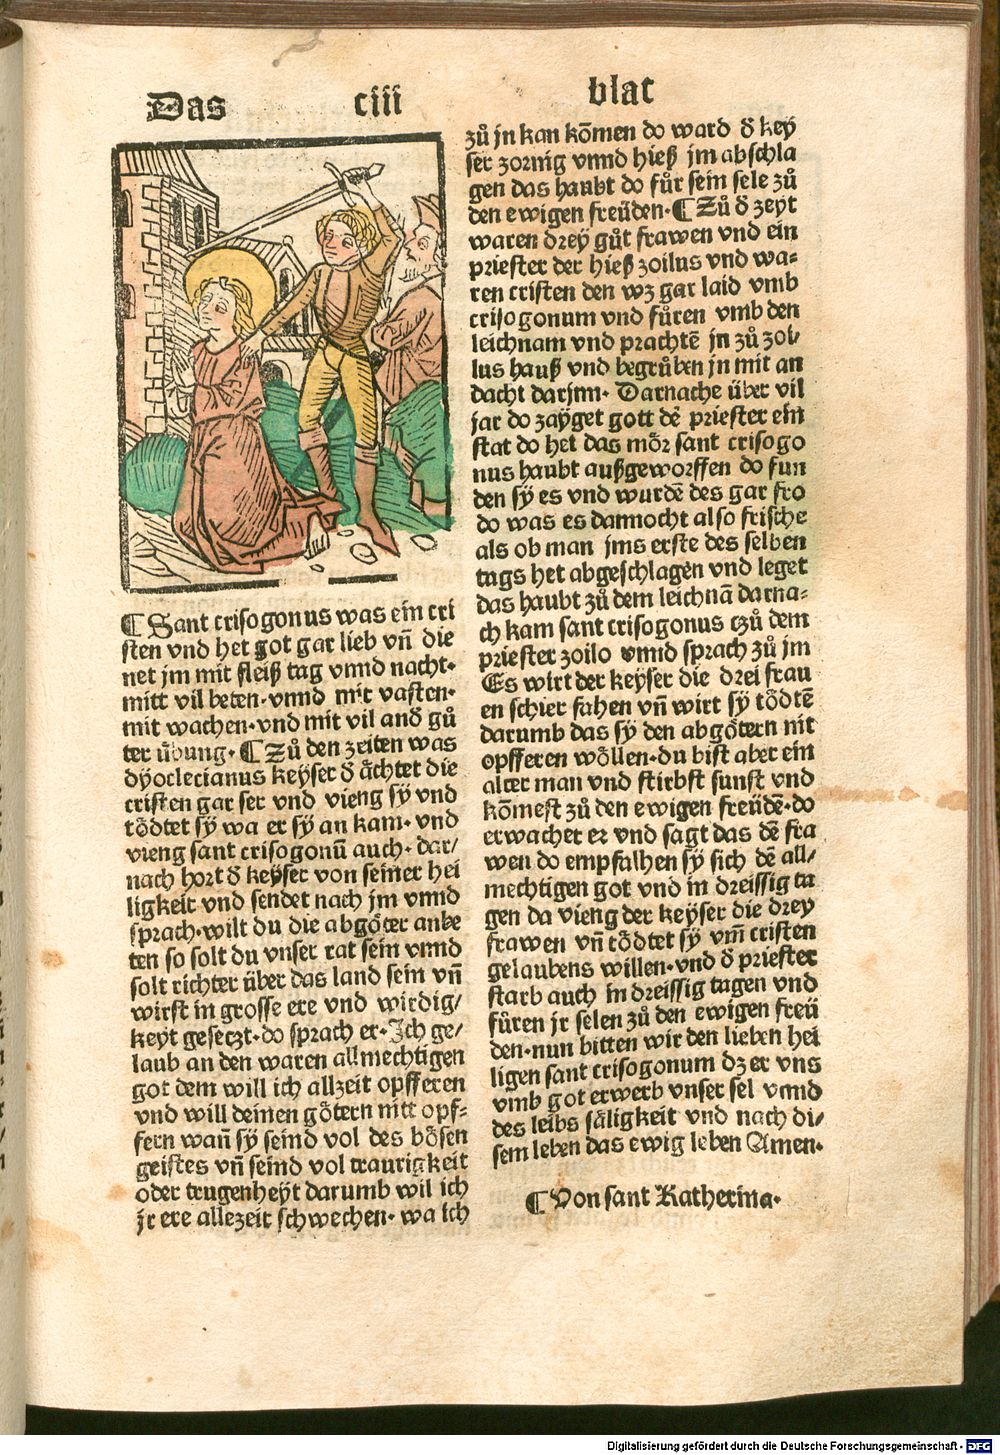 Das ciii blat
¶ Sant crisogonus was ein cri
sten vnd het got gar lieb vñ die
net jm mit fleiß tag vnnd nacht·
mitt vil beten·vnnd mit vasten·
mit wachen·vnd mit vil and̄ gů
ter übung·¶ Zů den zeiten was
dyoclecianus keyser d̄ ächtet die
cristen gar ser vnd vieng sÿ vnd
tödtet sÿ wa er sÿ an kam· vnd
vieng sant crisogonū auch· dar/
nach hort d̄ keyser von seiner hei
ligkeit vnd sendet nach jm vnnd
sprach·wilt du die abgöter anbe
ten so solt du vnser rat sein vnnd
solt richter über das land sein vñ
wirst in grosse ere vnd wirdig/
keyt gesetzt·do sprach er·Ich ge/
laub an den waren allmechtigen
got dem will ich allzeit opfferen
vnd will deinen götern nitt opf⸗
fern wañ sÿ seind vol des bösen
geistes vñ seind vol traurigkeit
oder trugenheyt darumb wil ich
jr ere allezeit schwechen· wa ich
zů jn kan kōmen do ward d̄ key
ser zornig vnnd hieß jm abschla
gen das haubt do fůr sein sele zů
den ewigen freüden·¶ Zů d̄ zeyt
waren drey gůt frawen vnd ein
priester der hieß zoilus vnd wa⸗
ren cristen den wz gar laid vmb
crisogonum vnd fůren vmb den
leichnam vnd prachtē jn zů zoi/
lus hauß vnd begrůben jn mit an
dacht darjnn· Darnache über vil
jar do zaÿget gott dē priester ein
stat do het das mör sant crisogo
nus haubt außgeworffen do fun
den sÿ es vnd wurdē des gar fro
do was es dannocht also frische
als ob man jms erste des selben
tags het abgeschlagen vnd leget
das haubt zů dem leichnā darna⸗
ch kam sant crisogonus czů dem
priester zoilo vnnd sprach zů jm
Es wirt der keyser die drei frau
en schier fahen vñ wirt sÿ tödtē
darumb das sÿ den abgötern nit
opfferen wöllen·du bist aber ein
alter man vnd stirbst sunst vnd
kōmest zů den ewigen freüdē·do
erwachet er vnd sagt das dē fra
wen do empfalhen sÿ sich dē all/
mechtigen got vnd in dreissig ta
gen da vieng der keyser die drey
frawen vñ tödtet sÿ vm̄ cristen
gelaubens willen·vnd d̄ priester
starb auch in dreissig tagen vnd
fůren jr selen zů den ewigen freü
den·nun bitten wir den lieben hei
ligen sant crisogonum dz er vns
vmb got erwerb vnser sel vnnd
des leibs säligkeit vnd nach di/
sem leben das ewig leben Amen·
¶ Von sant Katherina·
Digitalisierung gefördert durch die Deutsche Forschungsgemeinschaft - DFG